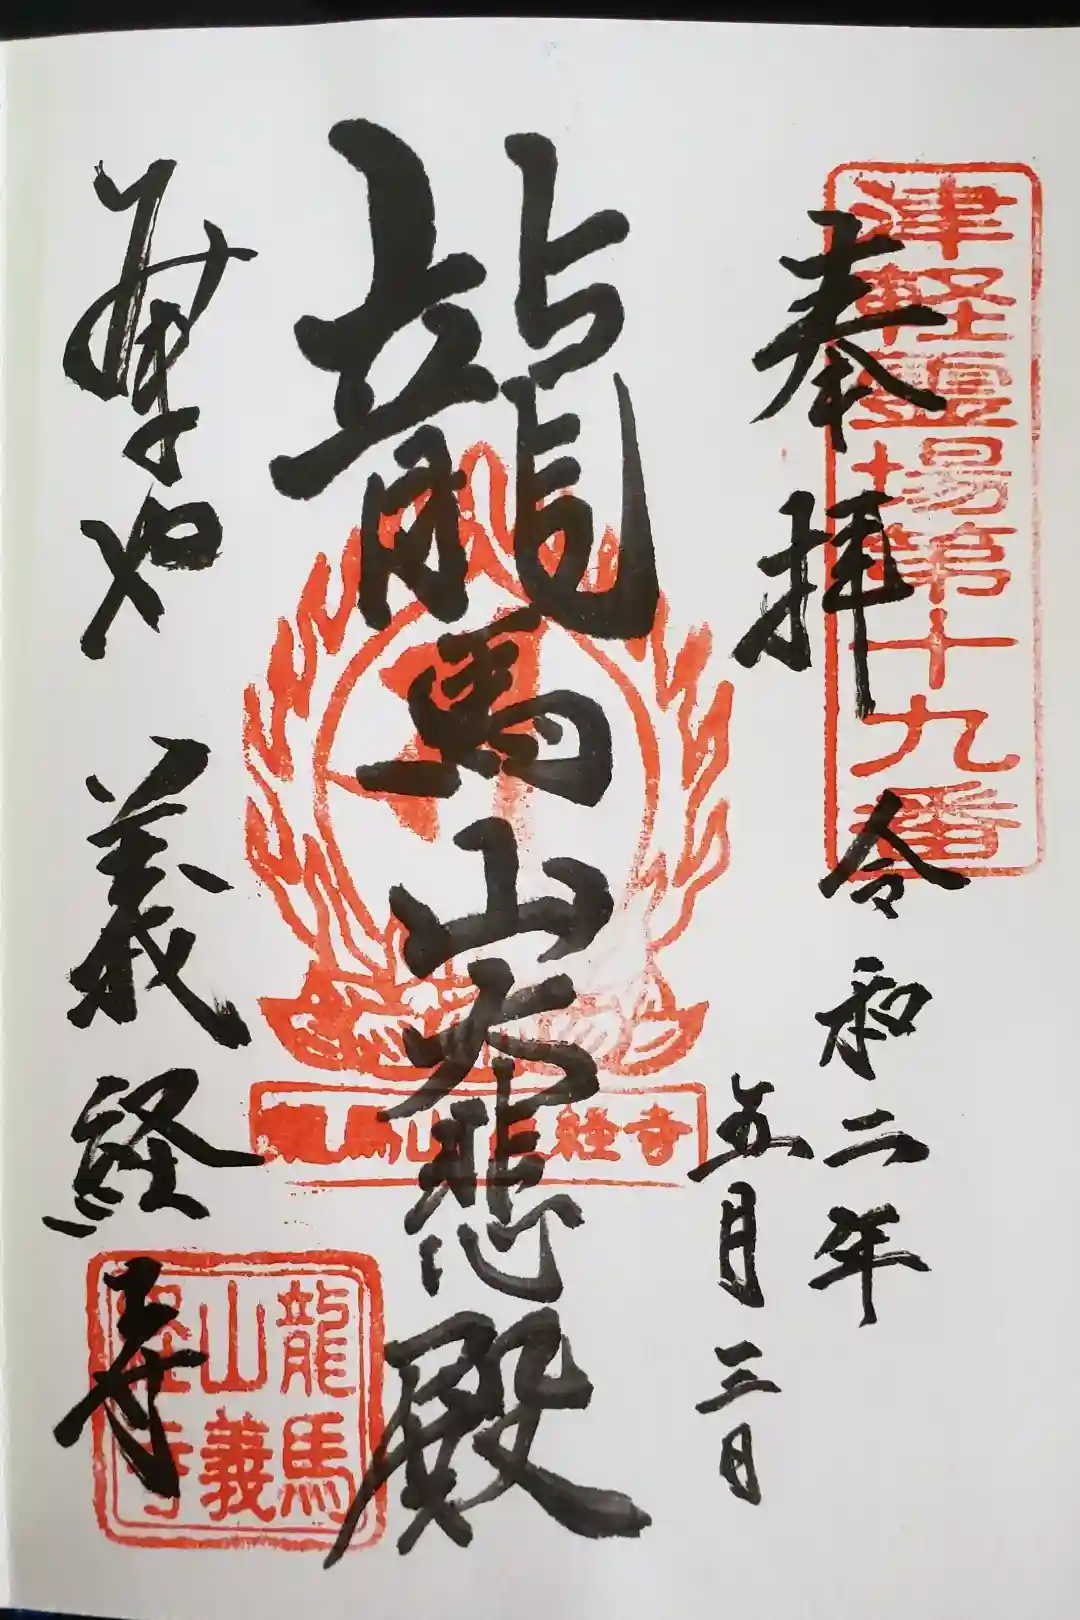 津軽霊場第十九番
奉拝
令和二年
五月三日
龍馬山大悲殿
龍馬山義経寺
義経寺
龍馬
山義
経寺